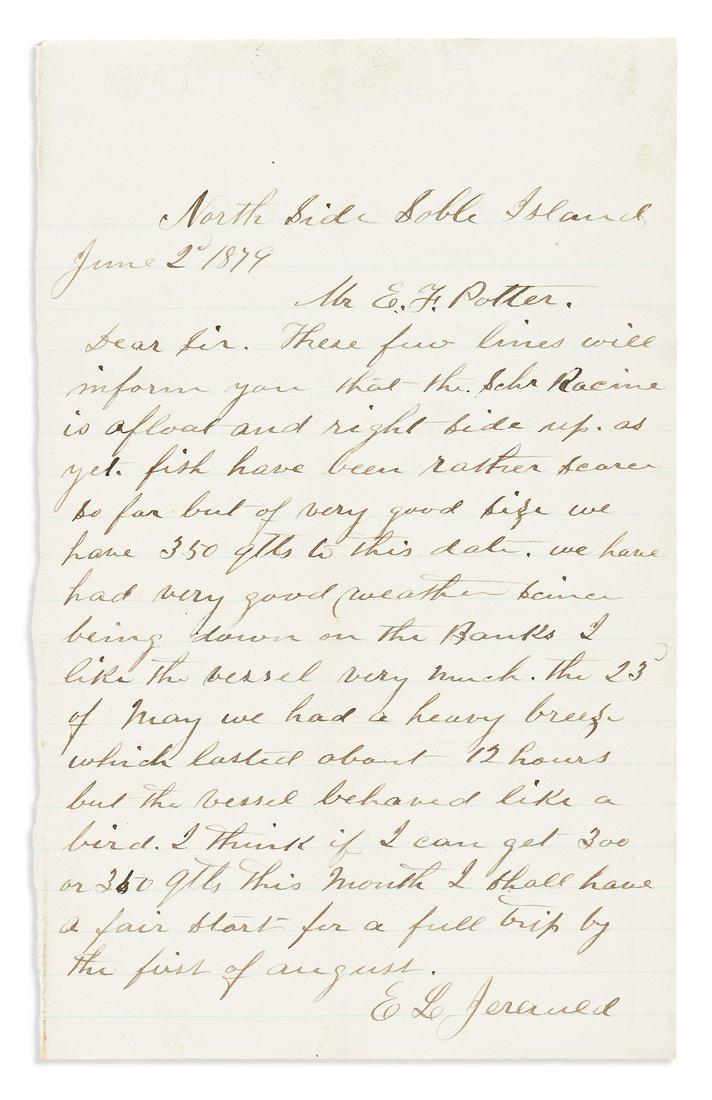 North Side Soble Island
June 2d 1879
Mr E. F. Potter.
Dear Sir. These few lines will
inform you that the Schr Racine
is afloat and right side up. as
yet. fish have been rather scarce
so far but of very good size we
have 350 qtls to this date. we have
had very good weather since
being down on the Banks I
like the vessel very much. the 23d
of May we had a heavy breeze
which lasted about 12 hours
but the vessel behaved like a
bird. I think if I can get 300
or 350 qtls this Month I shall have
a fair start for a full trip by
the first of august.
E L